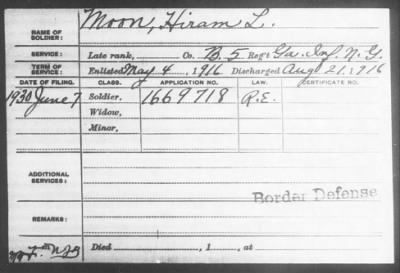 NAME OF SOLDIER: Moon, Hiram L.
SERVICE: Late rank, Co. B. 5 Reg't Ga. Inf. N. G.
TERM OF SERVICE: Enlisted May 4, 1916 Discharged Aug 21, 1916
DATE OF FILING. CLASS. APPLICATION NO. LAW. CERTIFICATE NO.
1930 June 7 Soldier, 1669718 R.E.
Widow,
Minor,
ADDITIONAL SERVICES:
Border Defense
REMARKS:
Died , 1 , at